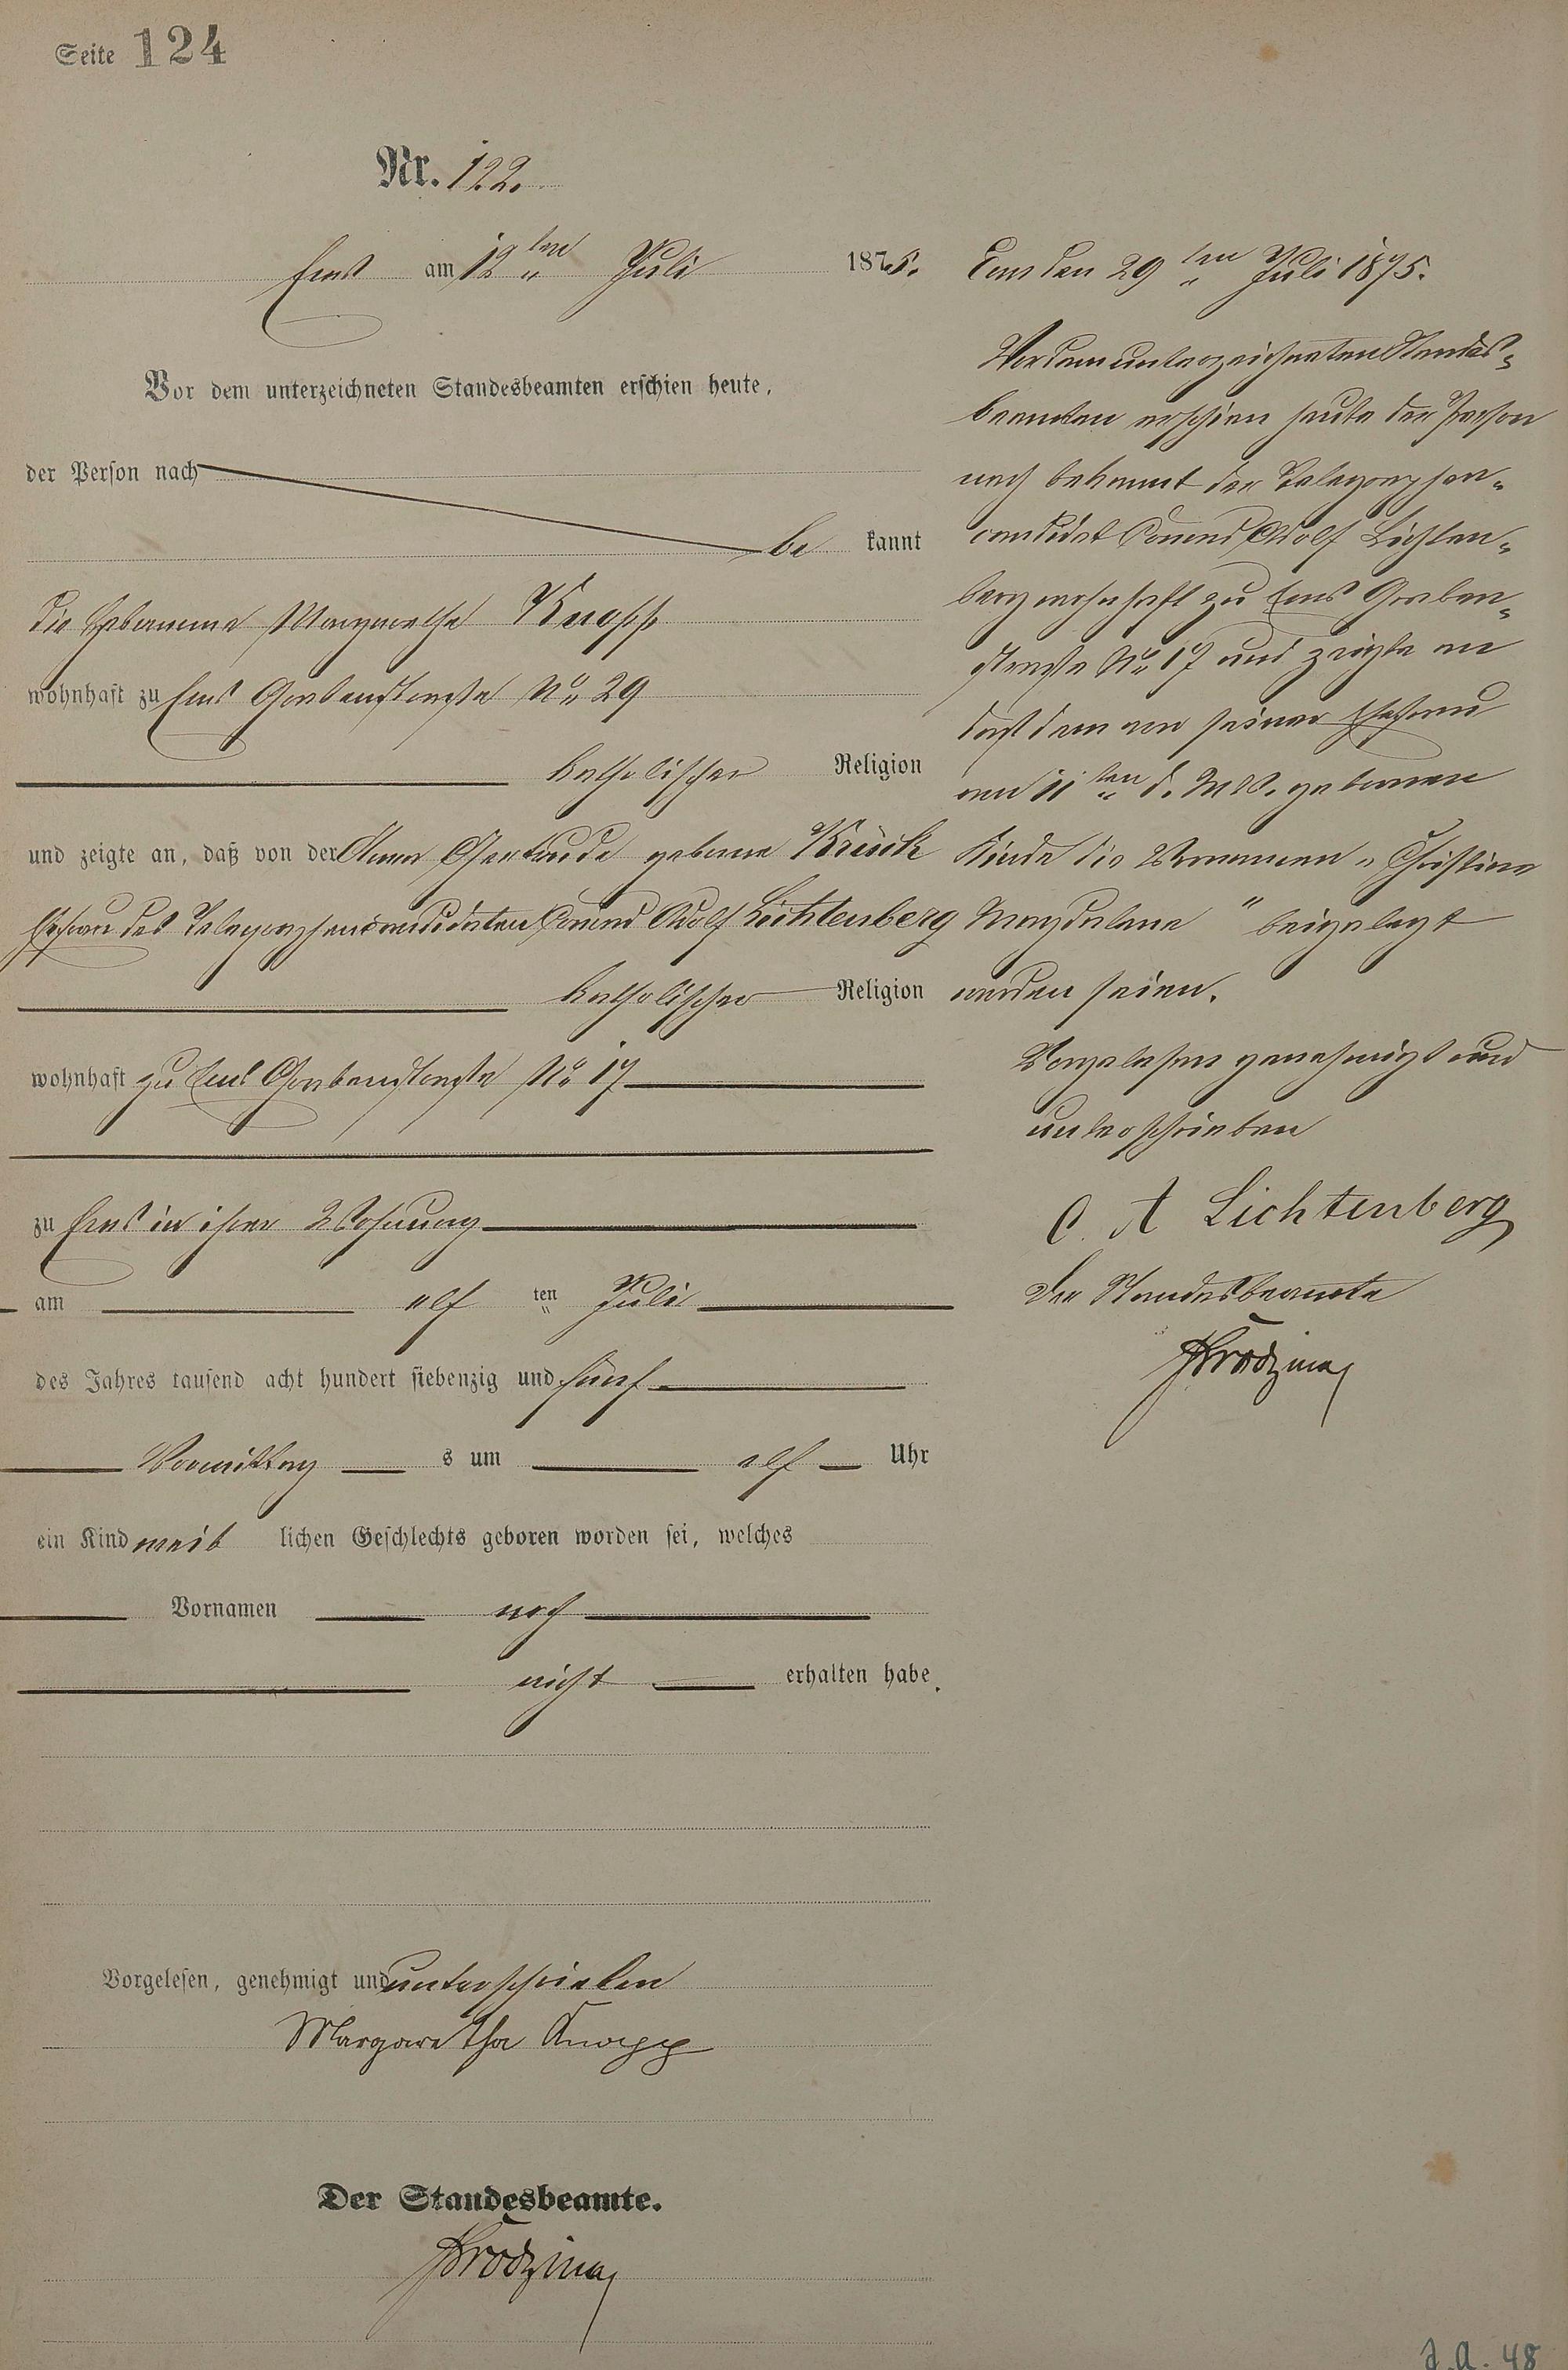 Seite 124
Nr. 122.
Ems am 12ten Juli 1875.
Vor dem unterzeichneten Standesbeamten erschien heute,
der Person nach
be kannt
die Hebamme Margarethe Knopp
wohnhaft zu Ems Grabenstraße No 29
katholischer Religion
und zeigte an, daß von der Anna Gertrude geborne Krück
Ehefrau des Telegraphencandidaten Conrad Adolf Lichtenberg
katholischer Religion
wohnhaft zu Ems Grabenstraße No 17
zu Ems in ihrer Wohnung
am elf ten Juli
des Jahres tausend acht hundert siebenzig und fünf
Vormittag s um elf Uhr
ein Kind weib lichen Geschlechts geboren worden sei, welches
Vornamen noch
nicht erhalten habe.
Vorgelesen, genehmigt und unterschrieben
Margaretha Knopp
Der Standesbeamte.
Ems den 29ten Juli 1875.
Vor dem unterzeichneten Standes-
beamten erschien heute der Person
nach bekannt der Telegraphen-
candidat Conrad Adolf Lichten-
berg wohnhaft zu Ems Graben-
straße No 17 und zeigte an
daß dem von seiner Ehefrau
am 11ten d. Mts. geborenen
Kinde die Vornamen „Christine
Magdalena" beigelegt
worden seien.
Vorgelesen genehmigt und
unterschrieben
C. A Lichtenberg
Der Standesbeamte
J.A. 48